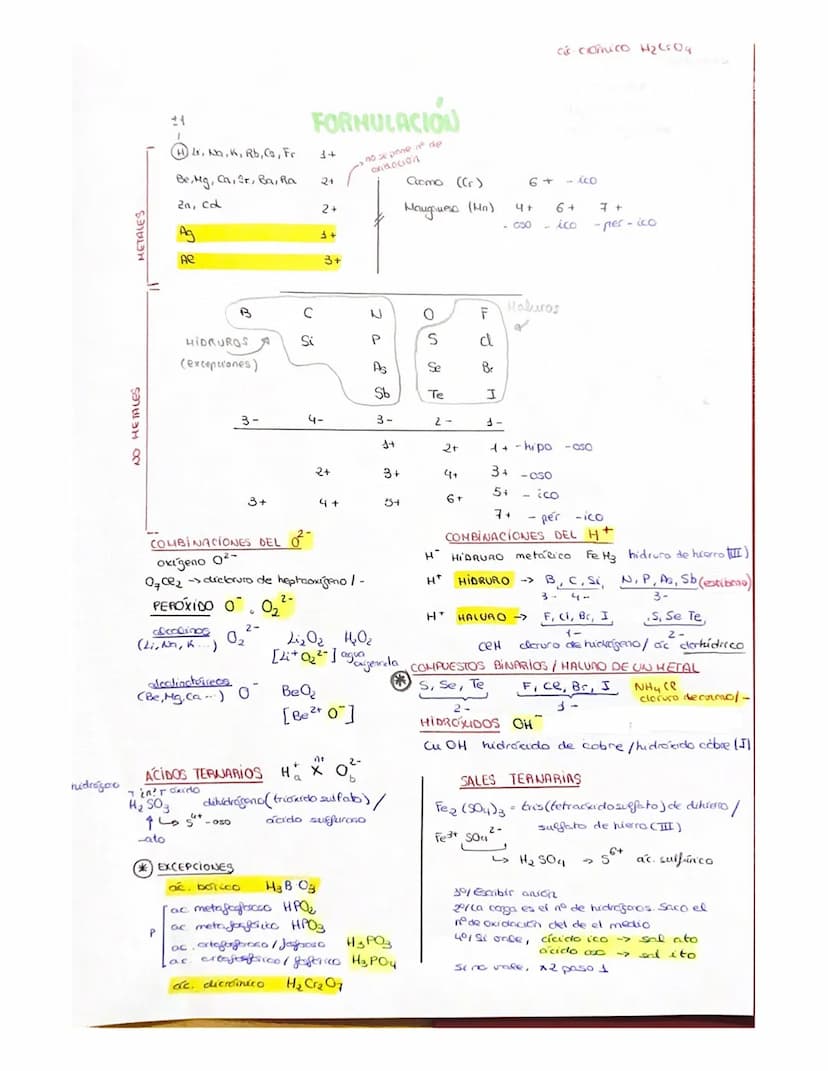 ác. crómico H2CrO4
11
FORMULACIÓN
H Li, Na, K, Rb, Cs, Fr 1+
Be, Mg, Ca, Sr, Ba, Ra 2+
Zn, Cd 2+
Ag 1+
Al 3+
→ no se pone nº de
oxidación
Cromo (Cr) 6+ -ico
Manganeso (Mn) 4+ 6+ 7+
-oso -ico -per-ico
METALES
B C N O F Haluros
HIDRUROS Si P S Cl
(excepciones) As Se Br
Sb Te I
NO METALES
3- 4- 3- 2- 1-
1+ 2+ 1+ -hipo -oso
2+ 3+ 4+ 3+ -oso
3+ 4+ 5+ 6+ 5+ -ico
7+ -per -ico
COMBINACIONES DEL O2-
oxígeno O2-
O7Cl2 → dicloruro de heptaoxígeno / -
PERÓXIDO O-, O2 2-
alcalinos
(Li, Na, K...) O2 2- Li2O2 H2O2
[Li+ O2 2-] agua
oxigenada
alcalinotérreos
(Be, Mg, Ca...) O- BeO2
[Be2+ O-]
COMBINACIONES DEL H+
H- HIDRURO metálico FeH3 hidruro de hierro (III)
H+ HIDRURO → B, C, Si, N, P, As, Sb (estibano)
3- 4- 3-
H+ HALURO → F, Cl, Br, I , S, Se Te,
1- 2-
ClH cloruro de hidrógeno / ác clorhídrico
* COMPUESTOS BINARIOS / HALURO DE UN METAL
S, Se, Te F, Cl, Br, I NH4Cl
2- 1- cloruro de amonio / -
HIDRÓXIDOS OH-
CuOH hidróxido de cobre / hidróxido cobre (I)
ÁCIDOS TERNARIOS Ha+ Xn+ Ob2-
hidrógeno
H2SO3 dihidrógeno (trioxido sulfato) /
↑ ↳ S4+ -oso ácido sulfuroso
-ato
* EXCEPCIONES
ác. bórico H3BO3
P
ac. metafosforoso HPO2
ac. metafosfórico HPO3
ac. ortofosforoso / fosforoso H3PO3
ac. ortofosfórico / fosfórico H3PO4
ác. dicrómico H2Cr2O7
SALES TERNARIAS
Fe2(SO4)3 = tris(tetraoxidosulfato) de dihierro /
sulfato de hierro (III)
Fe3+ SO4 2-
↳ H2SO4 → S6+ ác. sulfúrico
1º/ Escribir anión
2º/ La carga es el nº de hidrógenos. Saco el
nº de oxidación del de el medio
4º/ Si vale, ácido ico → sal ato
ácido oso → sal ito
Si no vale, x2 paso 1